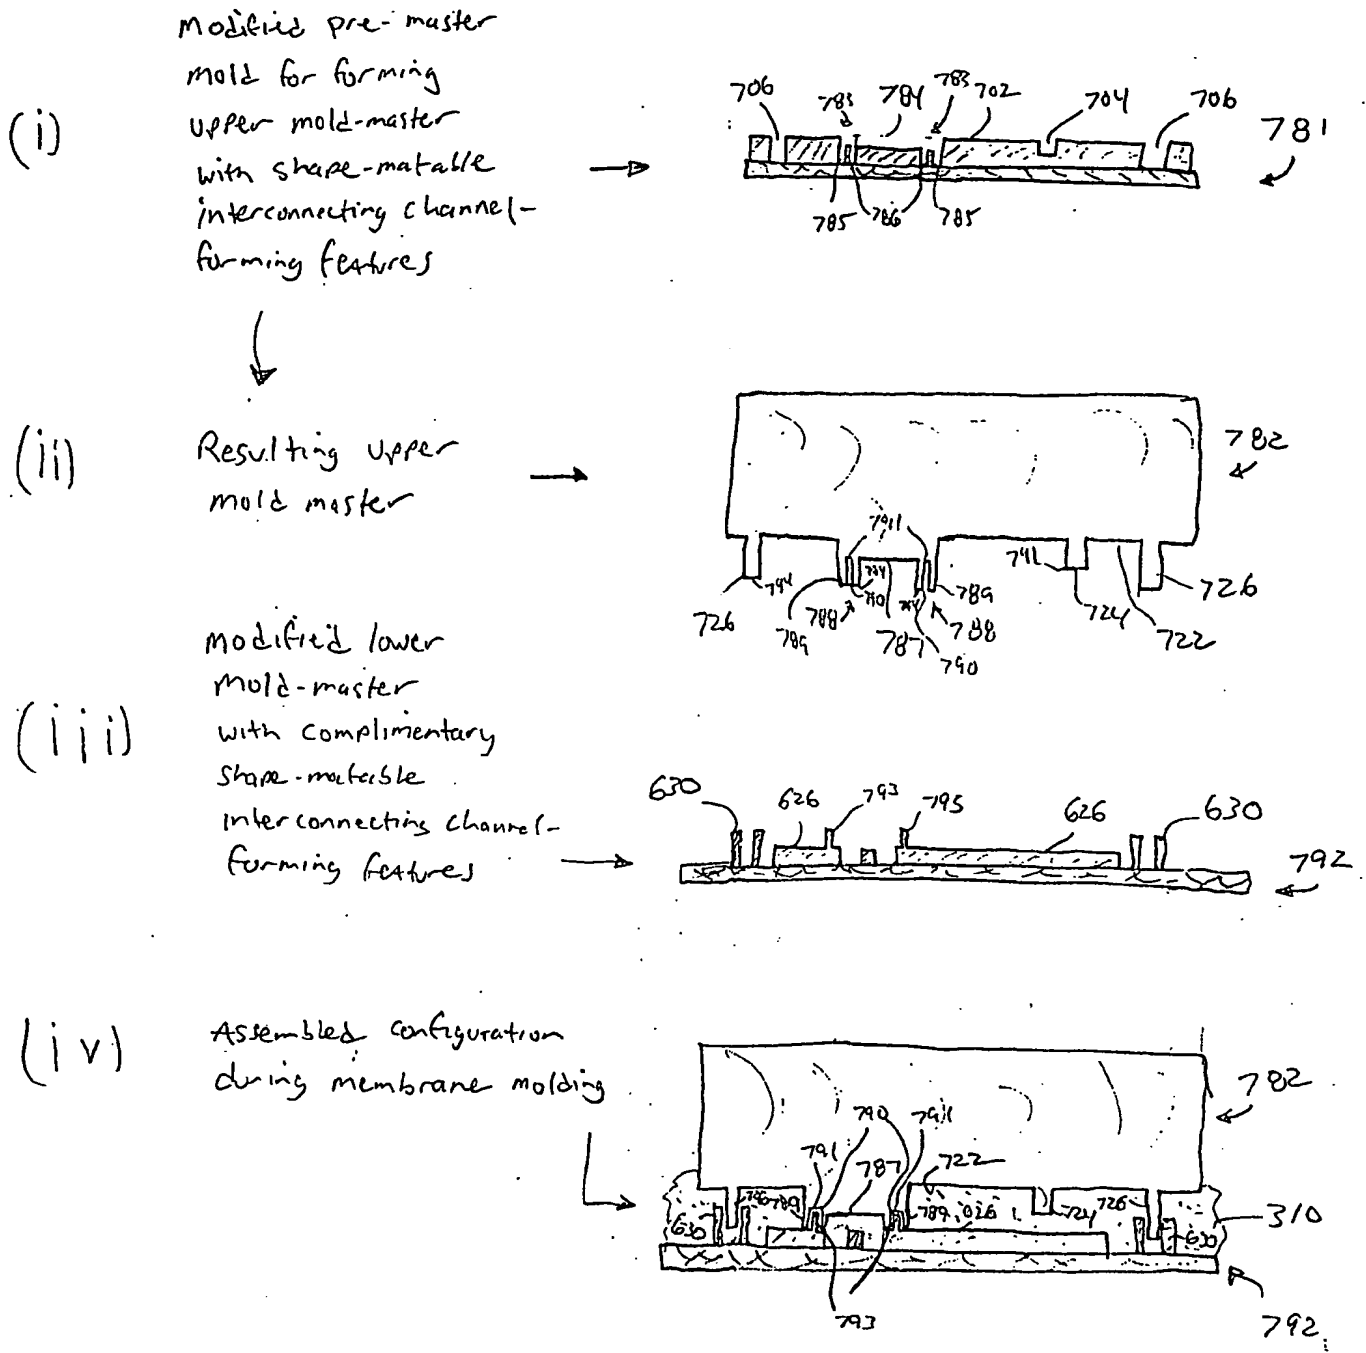 (i)
Modified pre-master
mold for forming
upper mold-master
with shape-matable
interconnecting channel-
forming features
706 783 784 783 702 704 706
781
785 786 785
(ii)
Resulting upper
mold master
782
791
794 741
726 789 788 790 794 787 790 788 789 724 722 726
(iii)
Modified lower
mold-master
with complimentary
shape-matable
interconnecting channel-
forming features
630 626 793 795 626 630
792
(iv)
Assembled configuration
during membrane molding
782
790 791
791 787 722
630 789 789 626 724 726 630
310
793
792